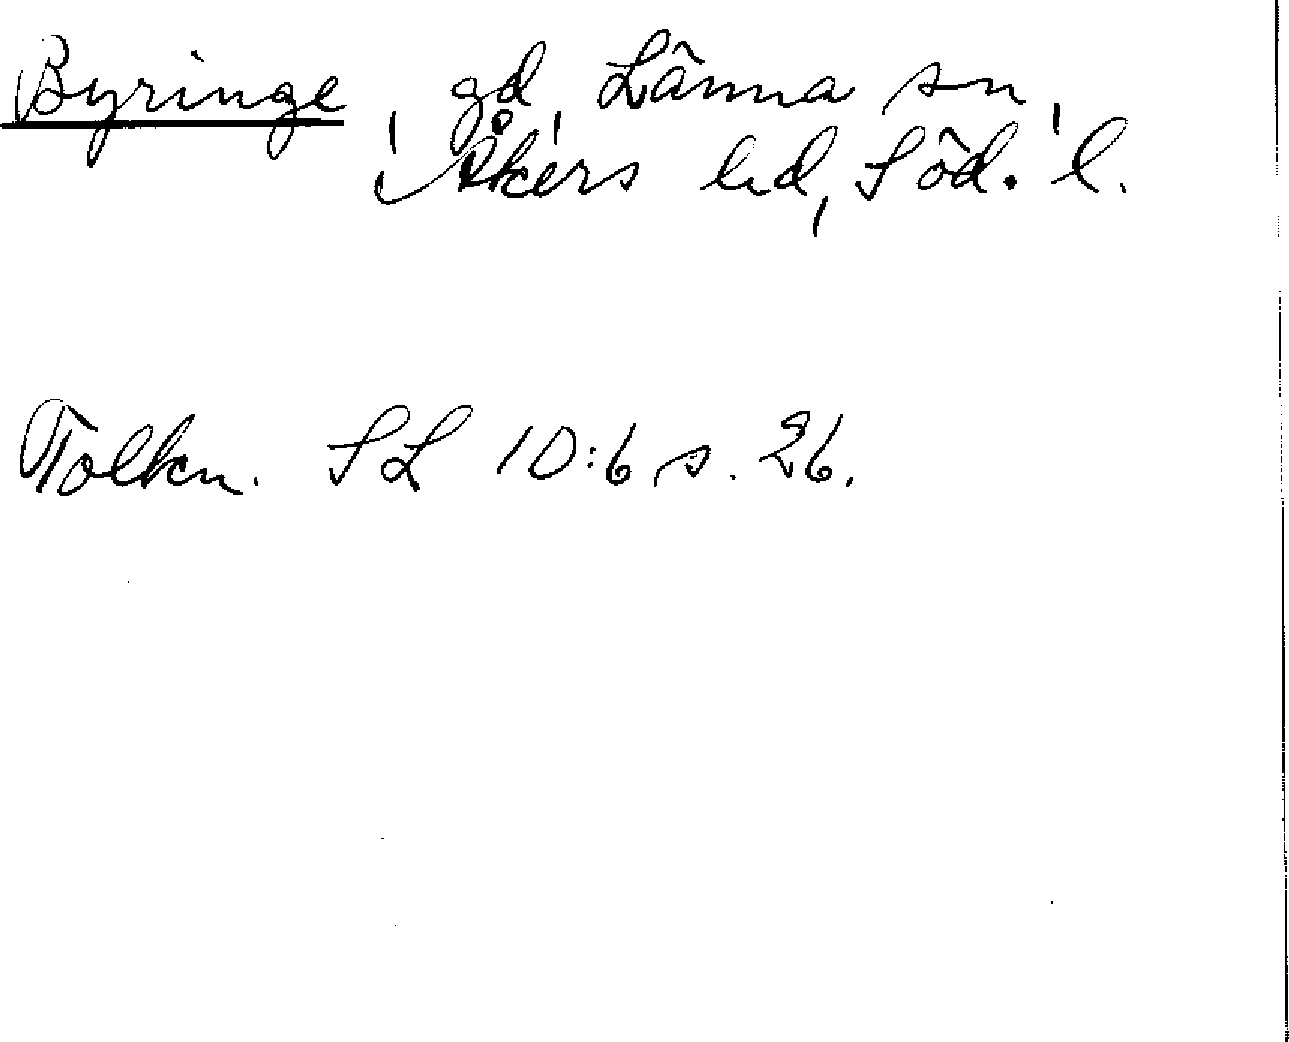 Byringe, gd, Länna sn,
Åkers hd, Söd. l.
Tolkn. SL 10:6 s. 26.